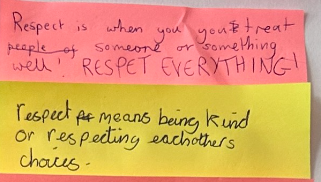 Respect is when you treat
people of someone or something
well! RESPET EVERYTHING!
respect means being kind
or respecting eachothers
choices.